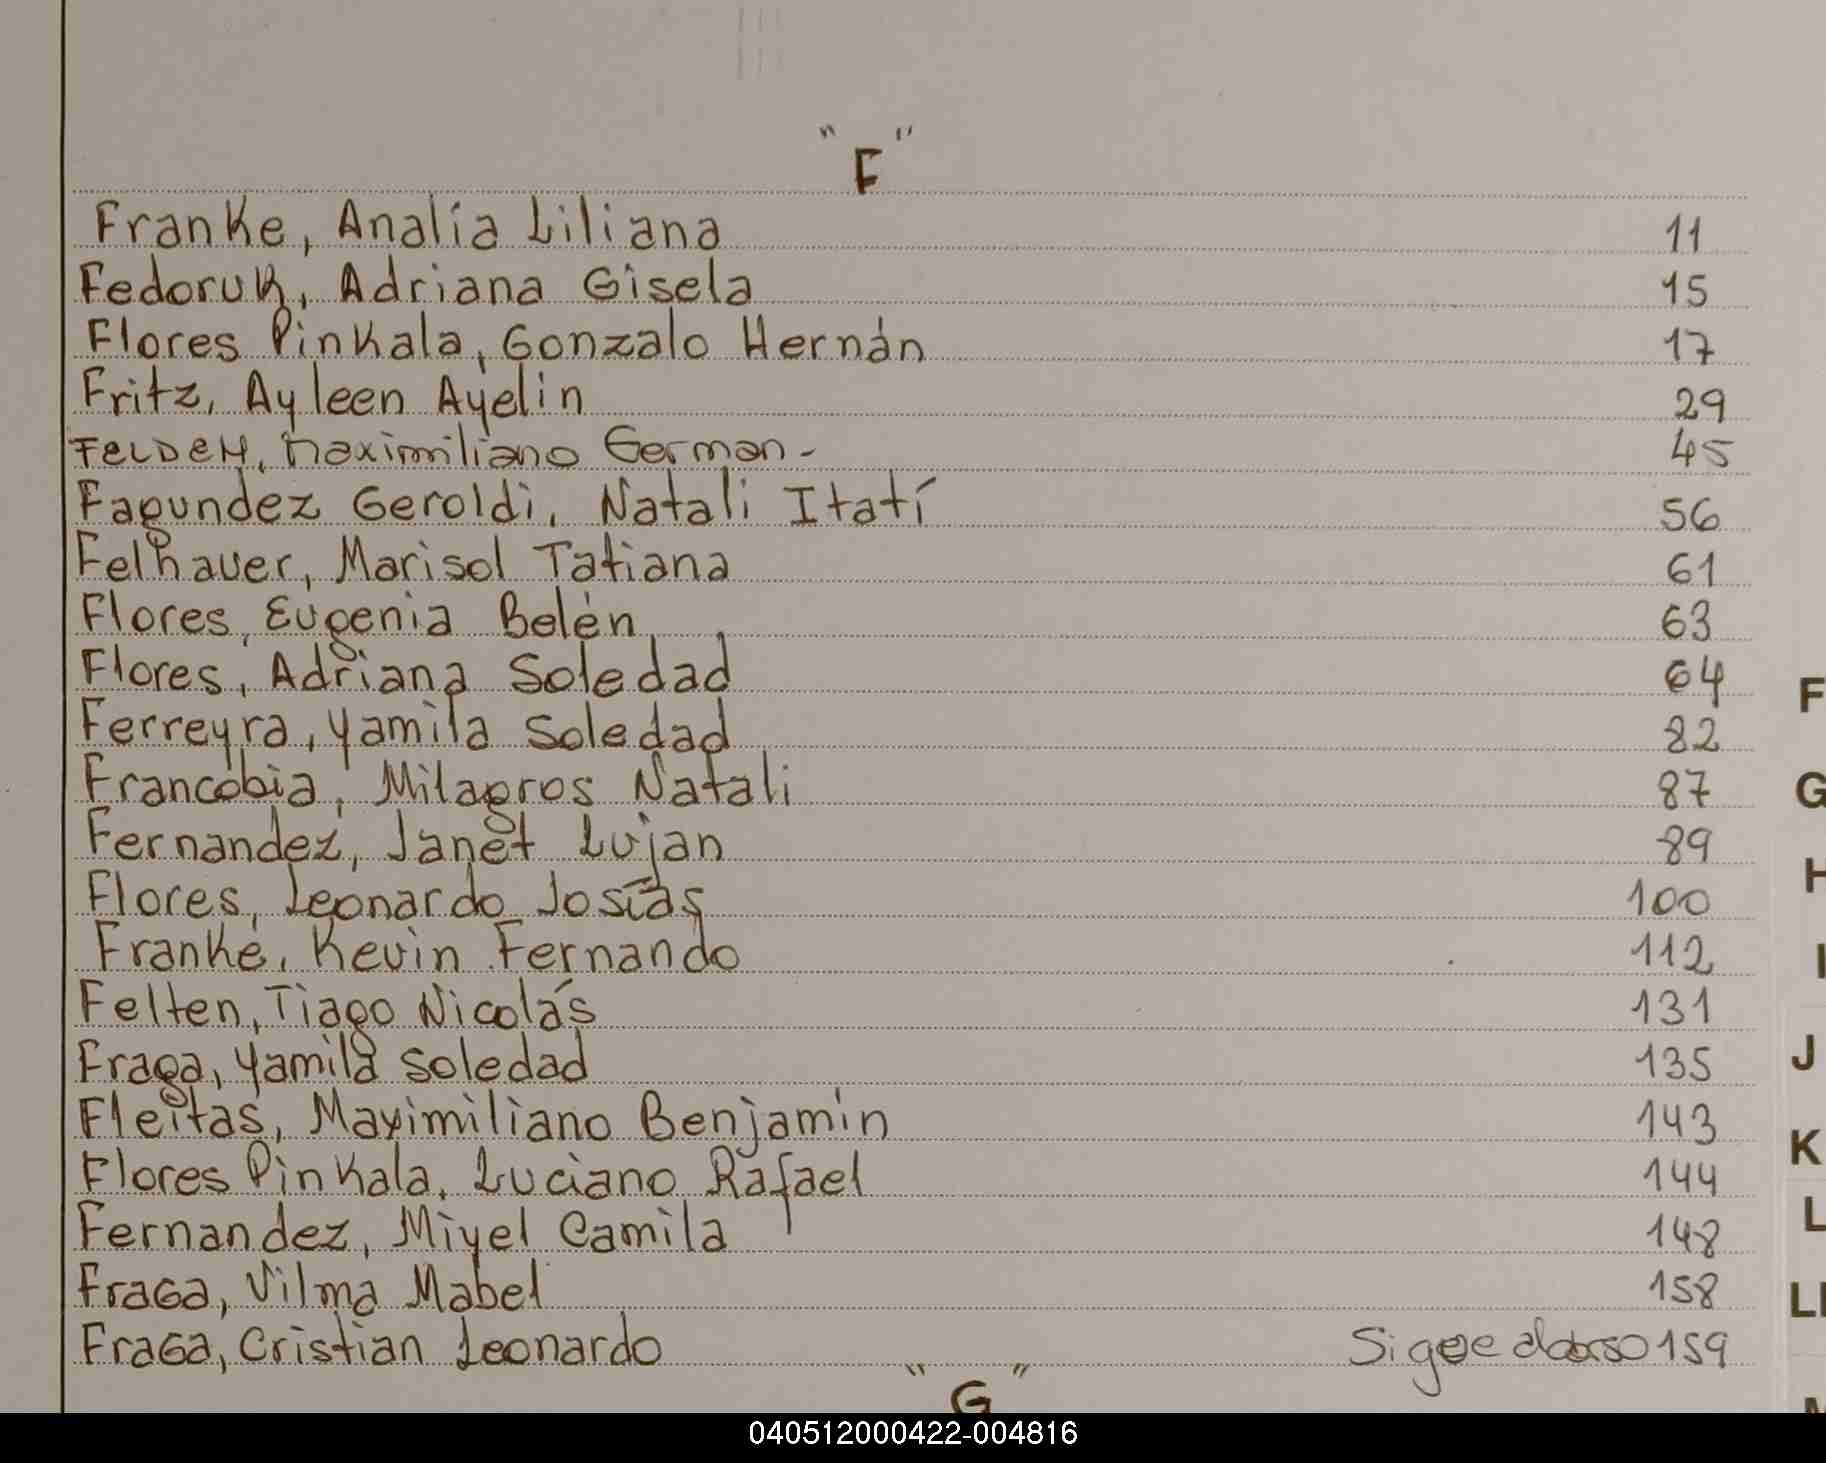 "F"
Franke, Analía Liliana 11
Fedoruk, Adriana Gisela 15
Flores Pinkala, Gonzalo Hernán 17
Fritz, Ayleen Ayelin 29
FELDEN, Maximiliano German- 45
Fagundez Geroldi, Natali Itatí 56
Felhauer, Marisol Tatiana 61
Flores, Eugenia Belén 63
Flores, Adriana Soledad 64
Ferreyra, Yamila Soledad 82
Francobia, Milagros Natali 87
Fernandez, Janet Lujan 89
Flores, Leonardo Josías 100
Franke, Kevin Fernando 112
Felten, Tiago Nicolás 131
Fraga, Yamila Soledad 135
Fleitas, Maximiliano Benjamín 143
Flores Pinkala, Luciano Rafael 144
Fernandez, Miyel Camila 148
FraGa, Vilma Mabel 158
FraGa, Cristian Leonardo Sigue 159
"G"
F
G
H
I
J
K
L
Ll
M
040512000422-004816